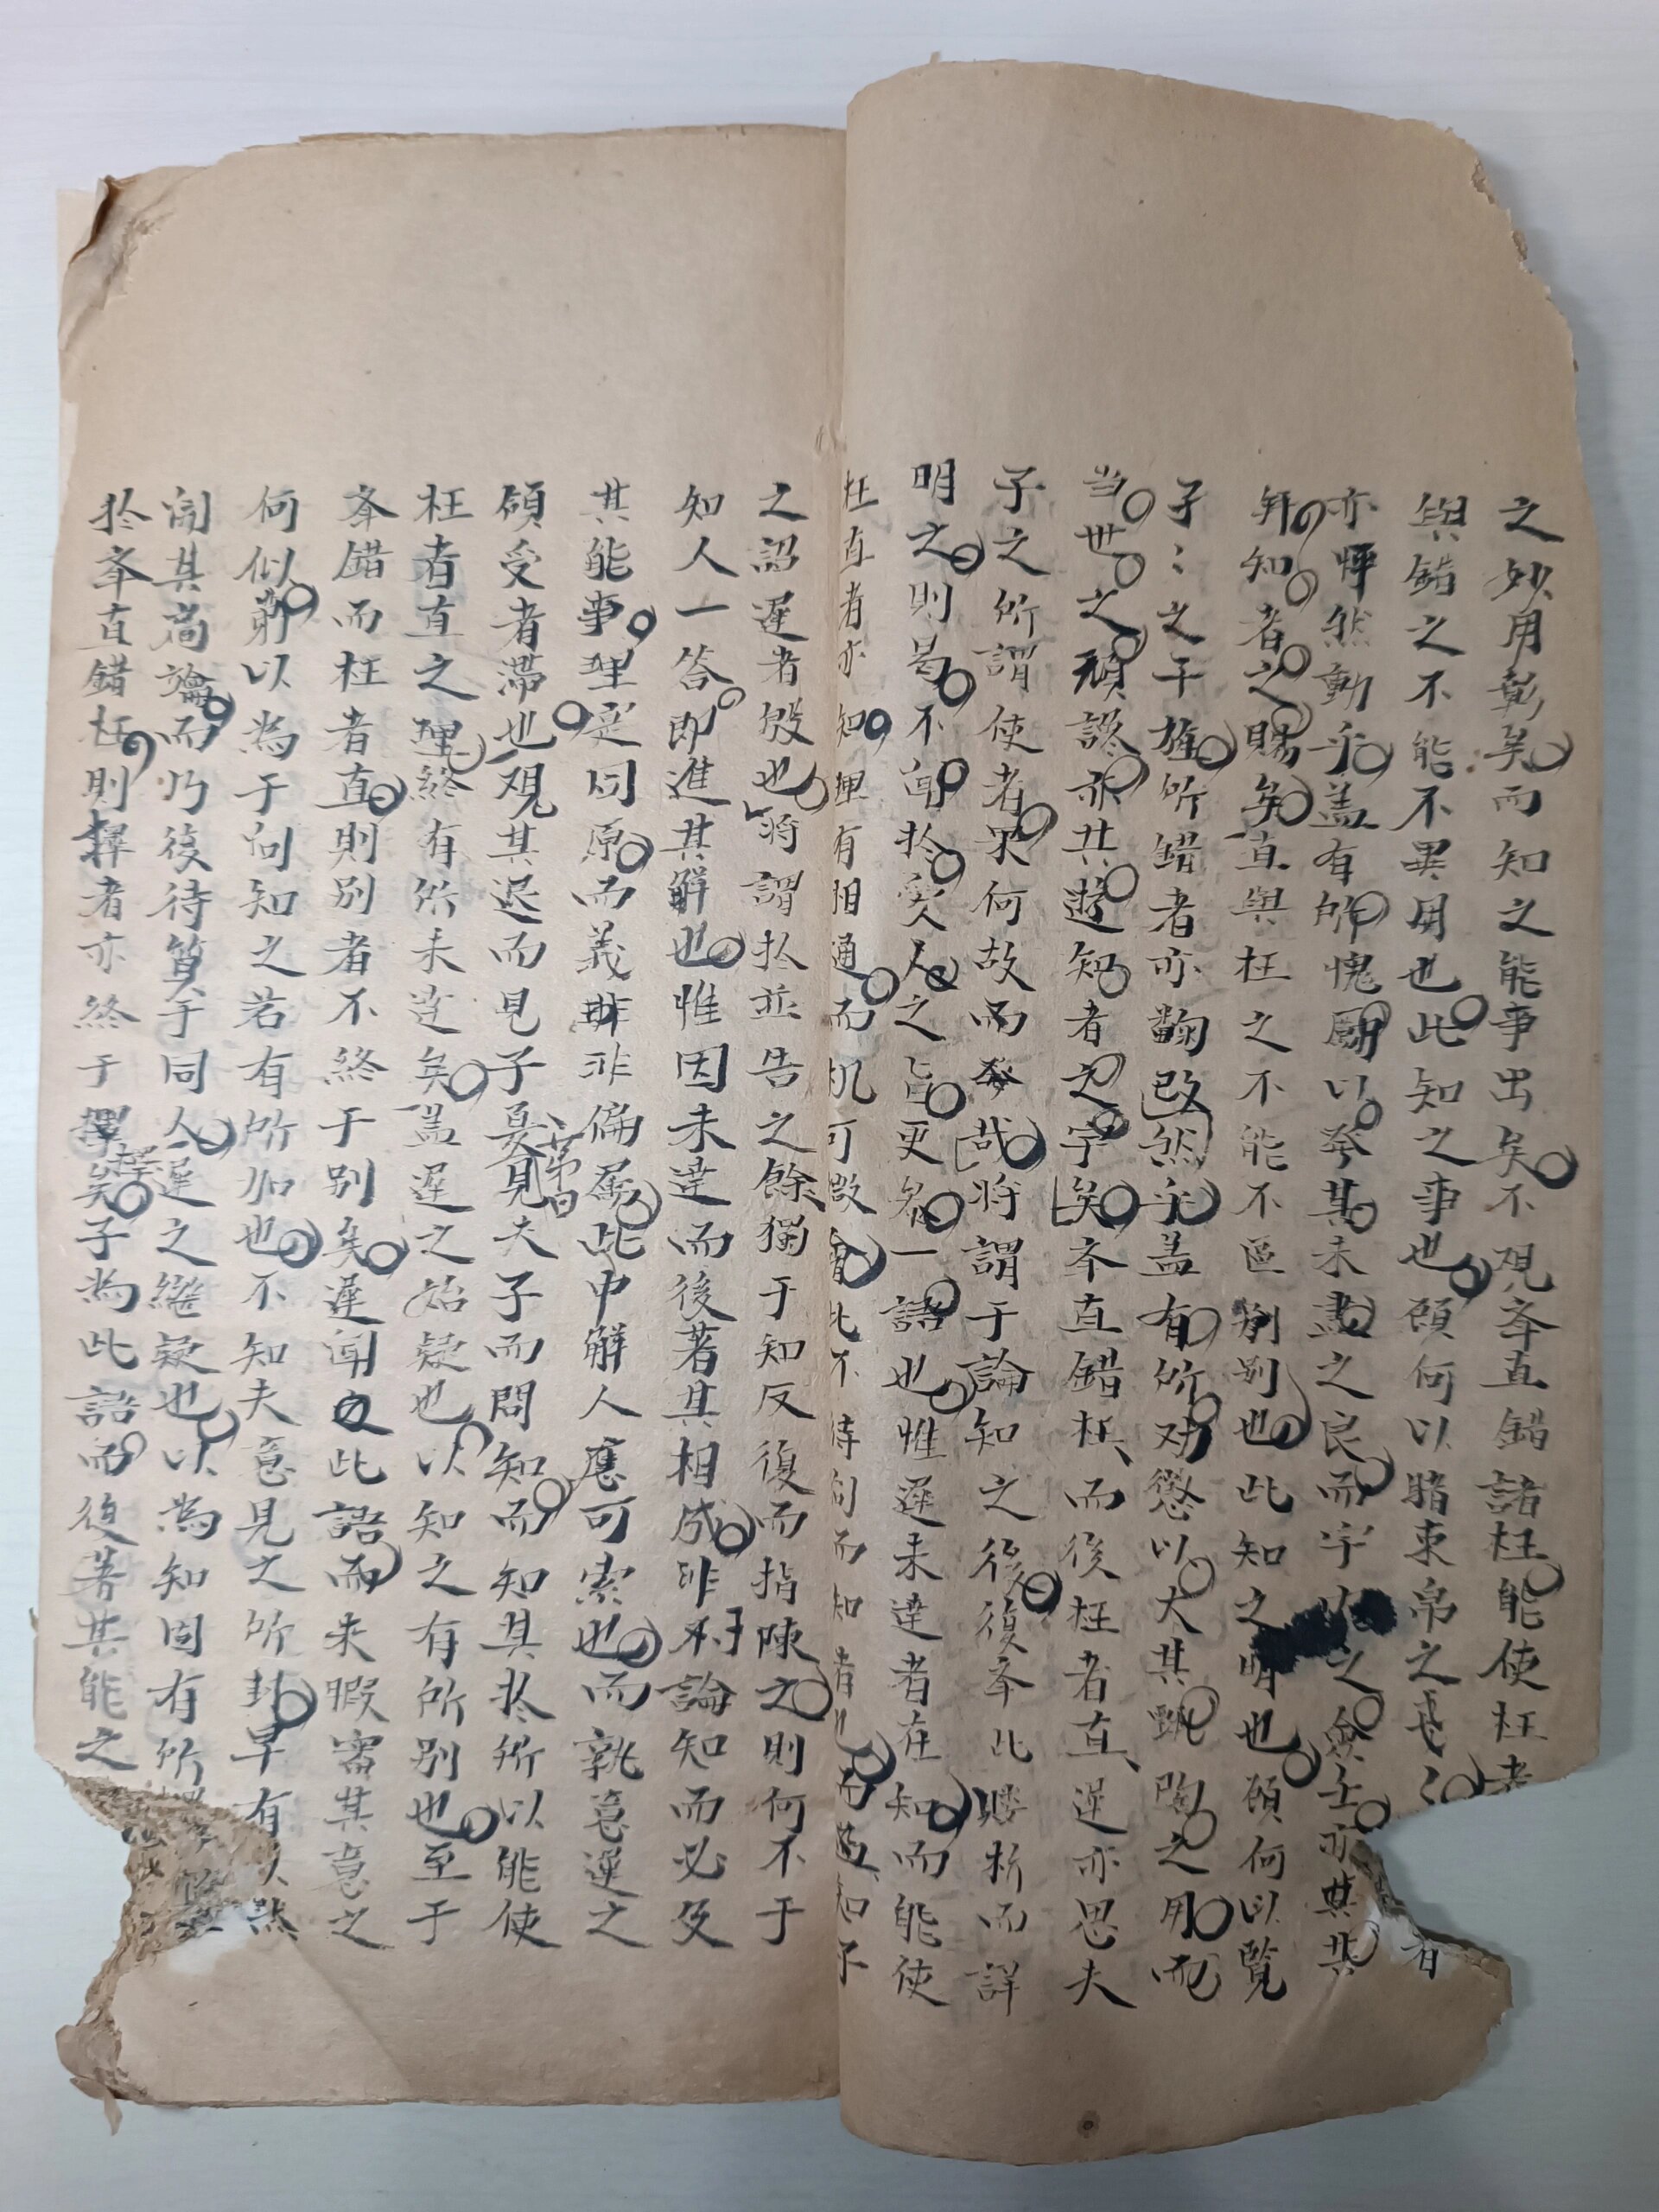 之妙用彰矣而知之能事出矣不观夅直錯諸枉能使枉者
與錯之不能不異用也此知之事也顾何以賭束帛之戔〻者
亦怦然動乎盖有所愧厲以夅其未盡之良而宇之
知者之賜矣直與枉之不能不區别别也此知之明也顾何以覽
孑〻之干旌所錯者亦翻改然乎盖有所劝懲以大其甄陶之用而
当世之頑讒亦共遊知者之宇矣夅直錯枉而後枉者直遅亦思夫
子之所謂使者果何故而發哉將謂于論知之後復夅此賢析而詳
明之則曷不闻扵愛人之旨更名一語也惟遅未達者在知而能使
枉直者亦知理有相通而机可微會此不待问而知者也而蓝知不
之詔遅者殷也將謂扵並告之餘獨于知反復而指陳之則何不于
知人一答即進其解也惟因未達而後著其相成非不論知而必及
其能事理是同原而義非非偏属此中解人應可索也而孰意遅之
顾受者滯也观其退而見子夏見夫子而問知而知其扵所以能使
枉者直之理終有所未達矣盖遅之始疑也以知之有所别也至于
夅錯而枉者直則别者不終于别矣遅闻之此語而未暇審其意之
何似第以為于问知之若有所加也不知夫意見之所封早有以然
闻其崗論而乃後待質手同人遅之繼疑也以為知固有所擇
扵夅直錯枉則擇者亦終于擇矣子為此語而復著其能之